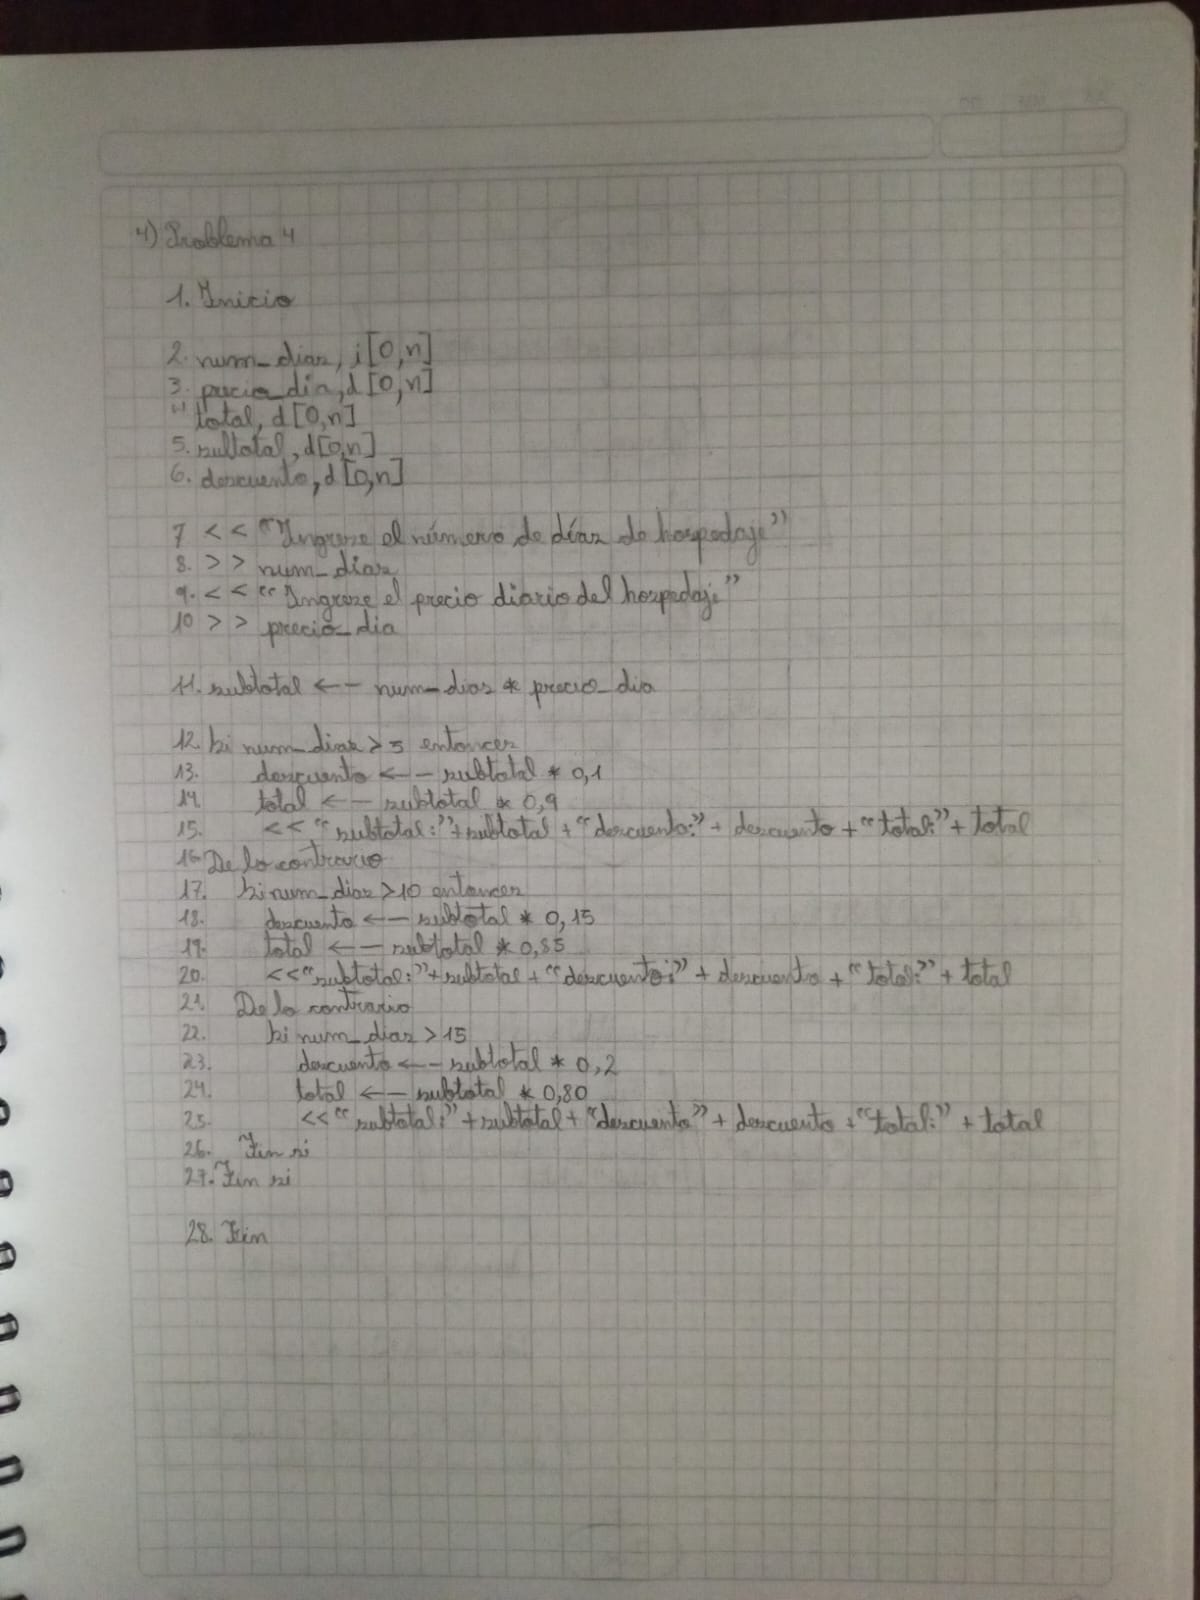 4) Problema 4
1. Inicio
2. num_dias, i[0,n]
3. precio_dia, d[0,n]
4 total, d[0,n]
5. subtotal, d[0,n]
6. descuento, d[0,n]
7 << "Ingrese el número de días de hospedaje"
8. >> num_dias
9. << "Ingrese el precio diario del hospedaje"
10 >> precio_dia
11. subtotal <-- num_dias * precio_dia
12. Si num_dias > 5 entonces
13. descuento <-- subtotal * 0,1
14 total <-- subtotal * 0,9
15. << "subtotal:" + subtotal + "descuento:" + descuento + "total:" + total
16 De lo contrario
17. Si num_dias > 10 entonces
18. descuento <-- subtotal * 0,15
19. total <-- subtotal * 0,85
20. << "subtotal:" + subtotal + "descuento:" + descuento + "total:" + total
21. De lo contrario
22. Si num_dias > 15
23. descuento <-- subtotal * 0,2
24. total <-- subtotal * 0,80
25. << "subtotal:" + subtotal + "descuento" + descuento + "total:" + total
26. Fin si
27. Fin si
28. Fin